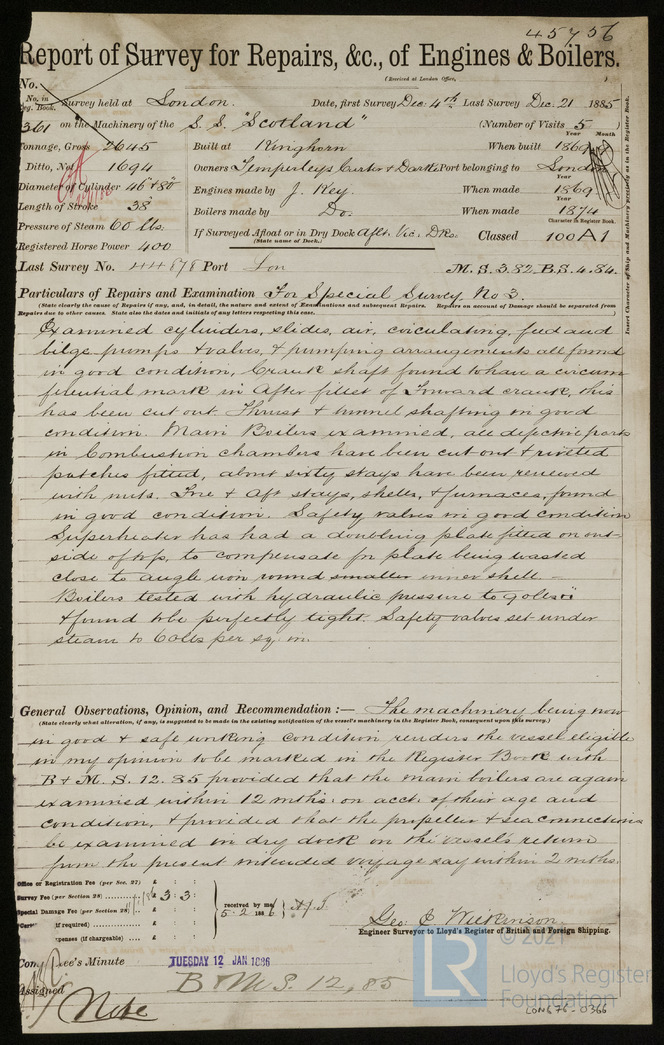 45756
Report of Survey for Repairs, &c., of Engines & Boilers.
(Received at London Office,
No.
No. in Reg. Book. Survey held at London. Date, first Survey Dec. 4th Last Survey Dec. 21 1885
361 on the Machinery of the S.S. "Scotland" (Number of Visits 5
Year Month
Tonnage, Gross 2645 Built at Kinghorn When built 1869
Ditto, Net 1694 Owners Temperleys Carter & Darke Port belonging to London
Year
Diameter of Cylinder 46" & 80" Engines made by J. Key. When made 1869
Length of Stroke 38
Year
Pressure of Steam 60 lbs. Boilers made by Do. When made 1874
Character in Register Book.
Registered Horse Power 400 If Surveyed Afloat or in Dry Dock Aflt. Vic. Dks. Classed 100 A1
(State name of Dock.)
Insert Character of Ship and Machinery precisely as in the Register Book.
Last Survey No. 44878 Port Lon M.S. 3.82. B.S. 4.84.
Particulars of Repairs and Examination For Special Survey No 3.
(State clearly the cause of Repairs if any, and, in detail, the nature and extent of Examinations and subsequent Repairs. Repairs on account of Damage should be separated from
Repairs due to other causes. State also the dates and initials of any letters respecting this case.)
Examined cylinders, slides, air, circulating, feed and
bilge pumps & valves, & pumping arrangements all found
in good condition, Crank shaft found to have a circum
ferential mark in after fillet of Forward crank, this
has been cut out. Thrust & tunnel shafting in good
condition. Main Boilers examined, all defective parts
in Combustion chambers have been cut out & riveted
patches fitted, about sixty stays have been renewed
with nuts. Fore & Aft stays, shells, & furnaces, found
in good condition. Safety valves in good condition
Superheater has had a doubling plate fitted on out-
side of top, to compensate for plate being wasted
close to angle iron round smaller inner shell. -
Boilers tested with hydraulic pressure to 90lbs □"
& found to be perfectly tight. Safety valves set under
steam to 60lbs per sq. in.
General Observations, Opinion, and Recommendation :— The machinery being now
(State clearly what alteration, if any, is suggested to be made in the existing notification of the vessel's machinery in the Register Book, consequent upon this survey.)
in good & safe working condition renders the vessel eligible
in my opinion to be marked in the Register Book with
B & M. S. 12. 85 provided that the main boilers are again
examined within 12 mths: on acct: of their age and
condition, & provided that the propeller & sea connections
be examined in dry dock on the vessel's return
from the present intended voyage say within 2 mths.
Office or Registration Fee (per Sec. 27) £ : :
Survey Fee (per Section 28) £ 3 : 3 :
Special Damage Fee (per Section 28) £ : :
received by me 5-2-1886
(if required) £ : :
penses (if chargeable) £ : :
Geo. E Wilkinson
Engineer Surveyor to Lloyd's Register of British and Foreign Shipping.
Committee's Minute TUESDAY 12 JAN 1886
Assigned B & M S. 12, 85
Note
© 2021
LR
Lloyd's Register
Foundation
LON675-0366